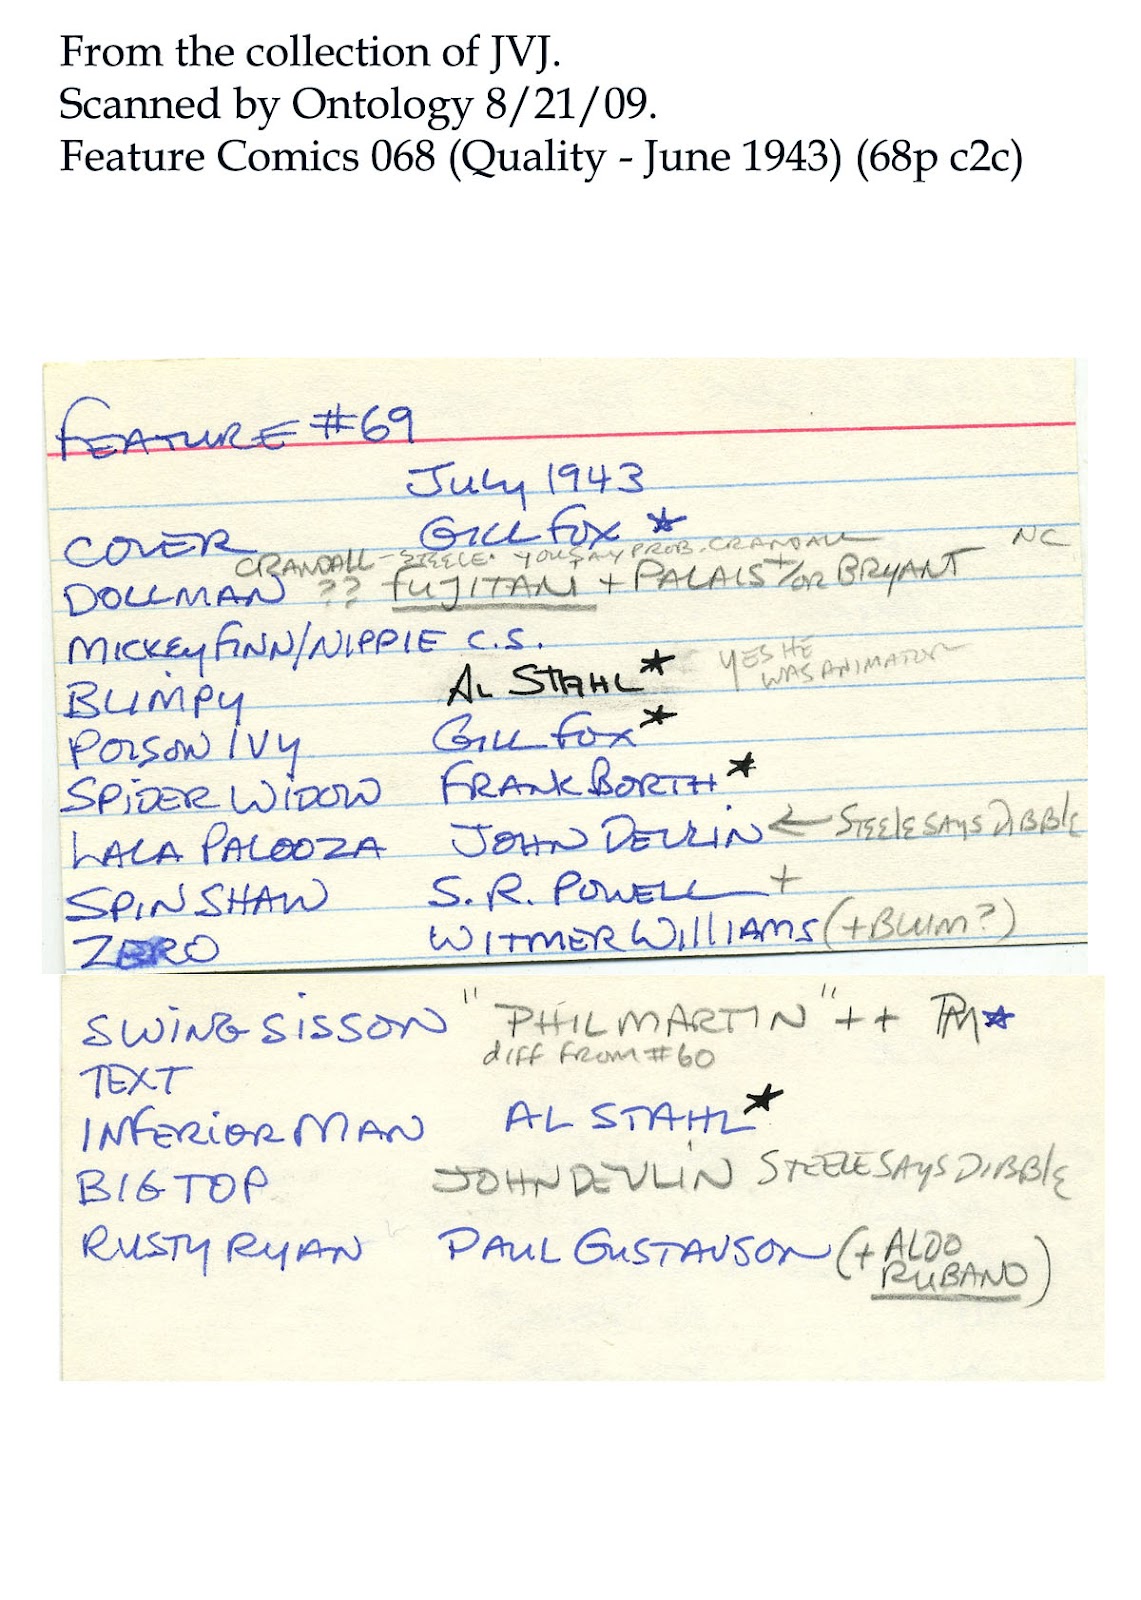 From the collection of JVJ.
Scanned by Ontology 8/21/09.
Feature Comics 068 (Quality - June 1943) (68p c2c)
FEATURE #69
July 1943
COVER GILL FOX ★
CRANDALL - STEELE. YOU SAY PROB. CRANDALL NC
DOLLMAN ?? FUJITANI + PALAIS +/OR BRYANT
MICKEY FINN/NIPPIE C.S.
BLIMPY AL STAHL ★ YES HE WAS ANIMATOR
POISON IVY GILL FOX ★
SPIDER WIDOW FRANK BORTH ★
LALA PALOOZA JOHN DEVLIN ← STEELE SAYS DIBBLE
SPIN SHAW S. R. POWELL +
ZERO WITMER WILLIAMS (+ BLUM?)
SWING SISSON "PHIL MARTIN" ++ PM ★
diff FROM #60
TEXT
INFERIOR MAN AL STAHL ★
BIG TOP JOHN DEVLIN STEELE SAYS DIBBLE
RUSTY RYAN PAUL GUSTAVSON (+ ALDO RUBANO)